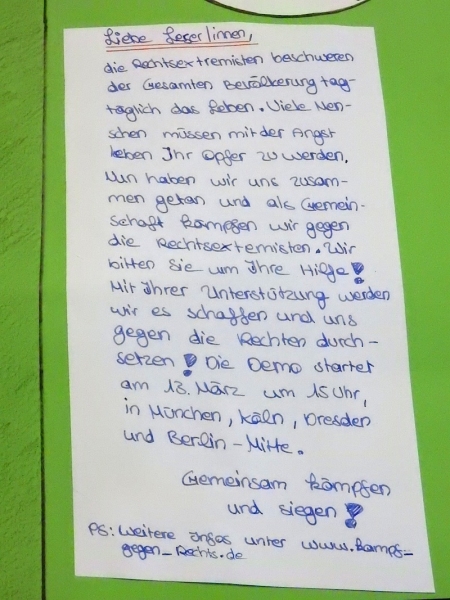 Liebe Leser/innen,
die Rechtsextremisten beschweren
der Gesamten Bevölkerung tag-
täglich das Leben. Viele Men-
schen müssen mit der Angst
leben Ihr Opfer zu werden.
Nun haben wir uns zusam-
men getan und als Gemein-
schaft kämpfen wir gegen
die Rechtsextemisten. Wir
bitten Sie um Ihre Hilfe!
Mit Ihrer Unterstützung werden
wir es schaffen und uns
gegen die Rechten durch-
setzen! Die Demo startet
am 13. März um 15 Uhr,
in München, Köln, Dresden
und Berlin-Mitte.
Gemeinsam kämpfen
und siegen!
PS: Weitere Infos unter www.kampf-
gegen_Rechts.de